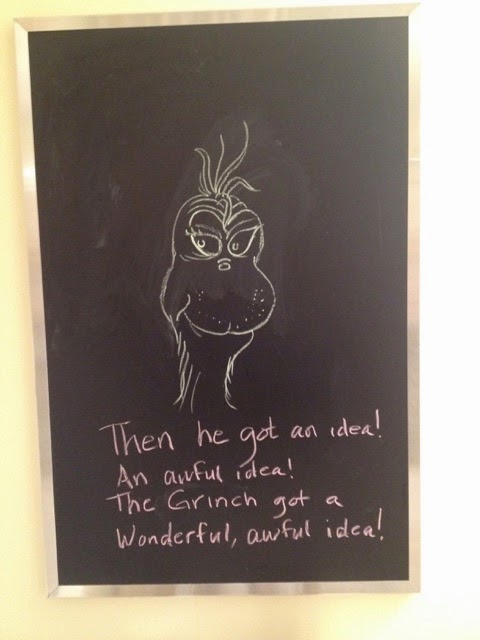 Then he got an idea!
An awful idea!
The Grinch got a
Wonderful, awful idea!